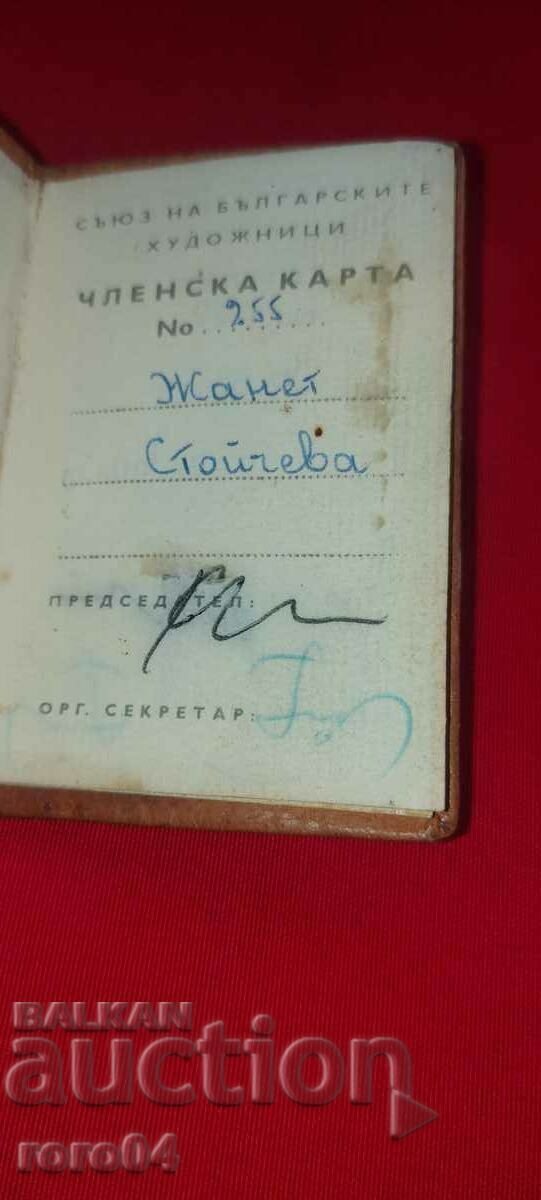 СЪЮЗ НА БЪЛГАРСКИТЕ
ХУДОЖНИЦИ
ЧЛЕНСКА КАРТА
No 255
Жанет
Стойчева
ПРЕДСЕДАТЕЛ:
ОРГ. СЕКРЕТАР:
BALKAN
auction
roro04